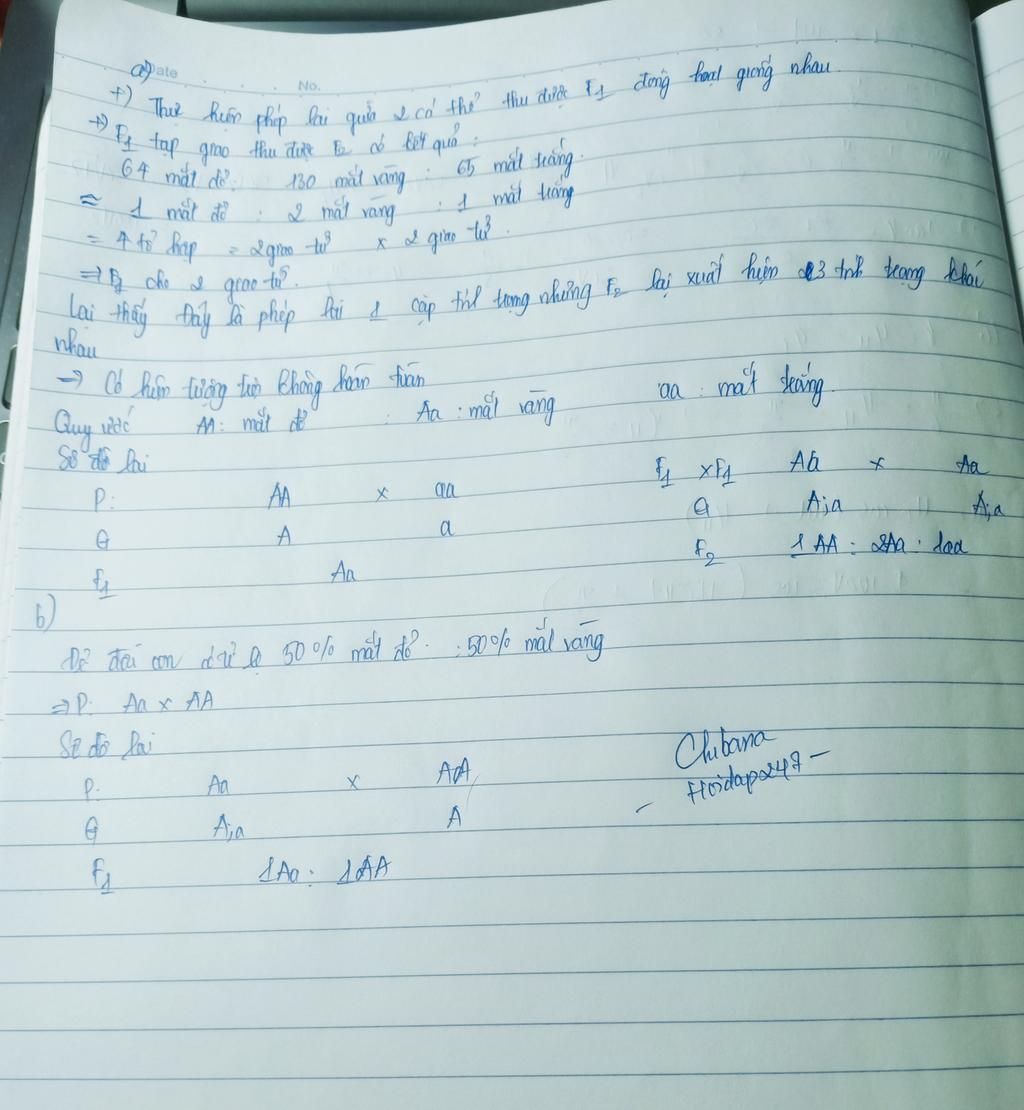 a) Date No.
+) Thực hiện phép lai giữa 2 cá thể thu được F1 đồng loạt giống nhau
+) F1 tạp giao thu được F2 có kết quả:
64 mắt đỏ : 130 mắt vàng : 65 mắt trắng.
≈ 1 mắt đỏ : 2 mắt vàng : 1 mắt trắng
= 4 tổ hợp = 2 giao tử × 2 giao tử.
=> F1 cho 2 giao tử.
Lại thấy Đây là phép lai 1 cặp tính trạng nhưng F2 lại xuất hiện 3 tính trạng khác
nhau
-> Có hiện tượng trội không hoàn toàn
Quy ước AA: mắt đỏ : Aa : mắt vàng aa : mắt trắng.
Sơ đồ lai
P: AA × aa
G A a
F1 Aa
F1 × F1 Aa × Aa
G A;a A;a
F2 1AA : 2Aa : 1aa
b)
Để đời con có tỉ lệ 50% mắt đỏ : 50% mắt vàng
=> P: Aa × AA
Sơ đồ lai
P: Aa × AA
G A;a A
F1 1Aa : 1AA
Chibana
- Hoidap247 -